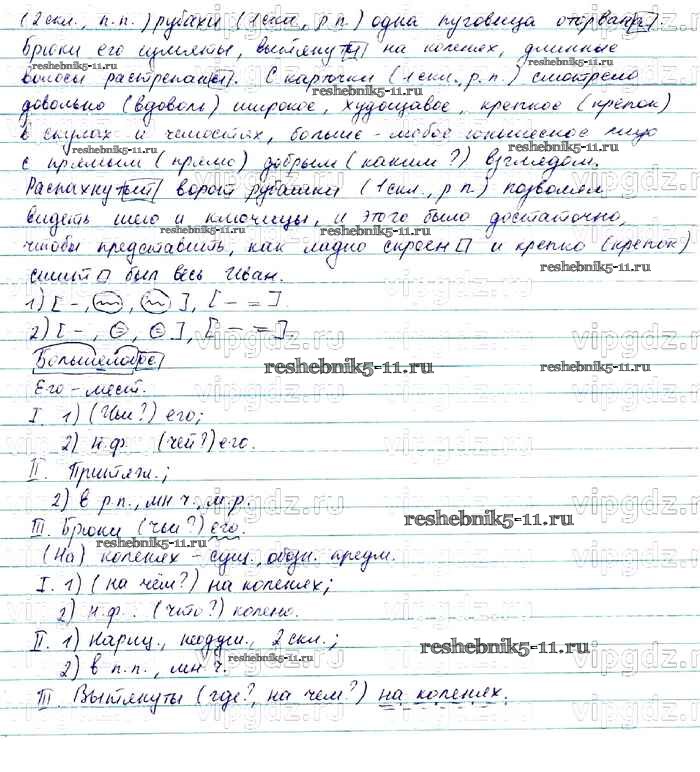 (2 скл., п.п.) рубахи (1 скл., р.п.) одна пуговица оторвана.
Брюки его измяты, вытянуты на коленях, длинные
волосы растрепаны. С карточки (1 скл., р.п.) смотрело
довольно (вдоволь) широкое, худощавое, крепкое (крепок)
в скулах и челюстях, больше-лобое юношеское лицо
с прямым (прямо) добрым (каким?) взглядом.
Распахнутый ворот рубашки (1 скл., р.п.) позволял
видеть шею и ключицы, и этого было достаточно,
чтобы представить, как ладно скроен и крепко (крепок)
сшит был весь Иван.
1) [ – , , ], [ – = ].
2) [ – , = , = ], [ – = ].
Большелобое
Его – мест.
I. 1) (Чьи?) его;
2) н.ф. (чей?) его.
II. Притяж.;
2) в р.п., мн.ч., м.р.
III. Брюки (чьи?) его.
(На) коленях – сущ., обозн. предм.
I. 1) (на чём?) на коленях;
2) н.ф. (что?) колено.
II. 1) нариц., неодуш., 2 скл.;
2) в п.п., мн.ч.
III. Вытянуты (где?, на чем?) на коленях.
reshebnik5-11.ru
vipgdz.ru